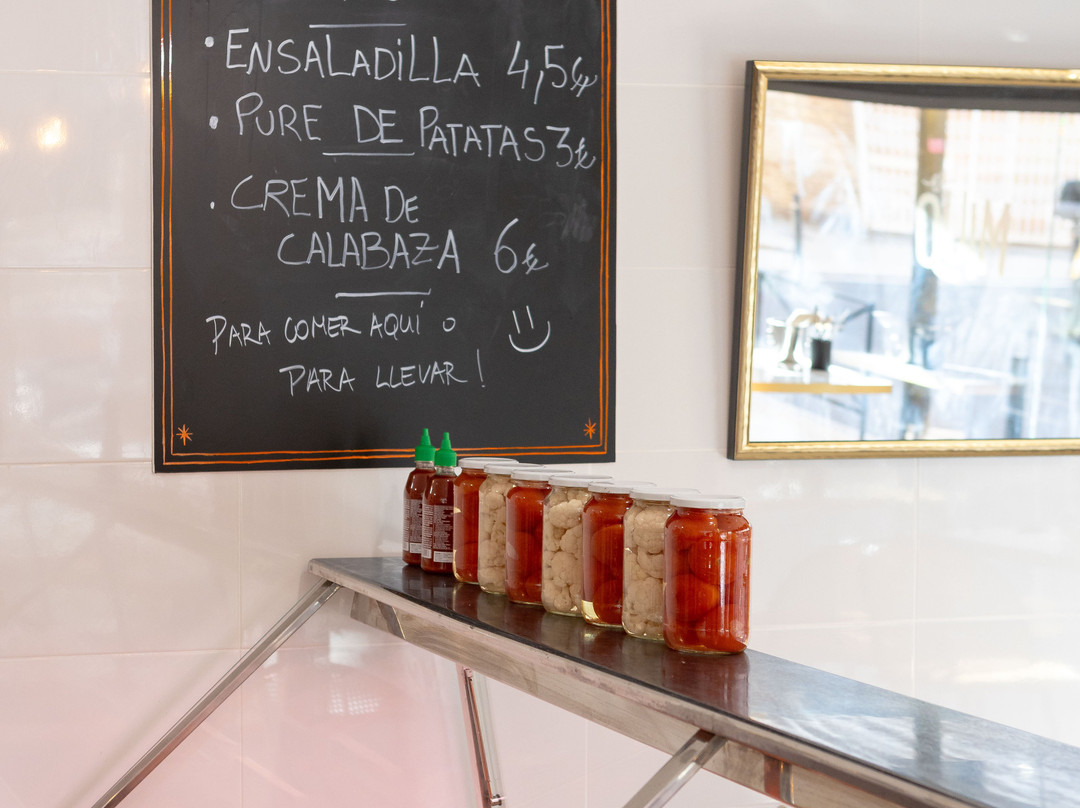 • ENSALADiLLA 4,5€
• PURE DE PATATAS 3€
• CREMA DE
CALABAZA 6€
PARA COMER AQUÍ O
PARA LLEVAR!